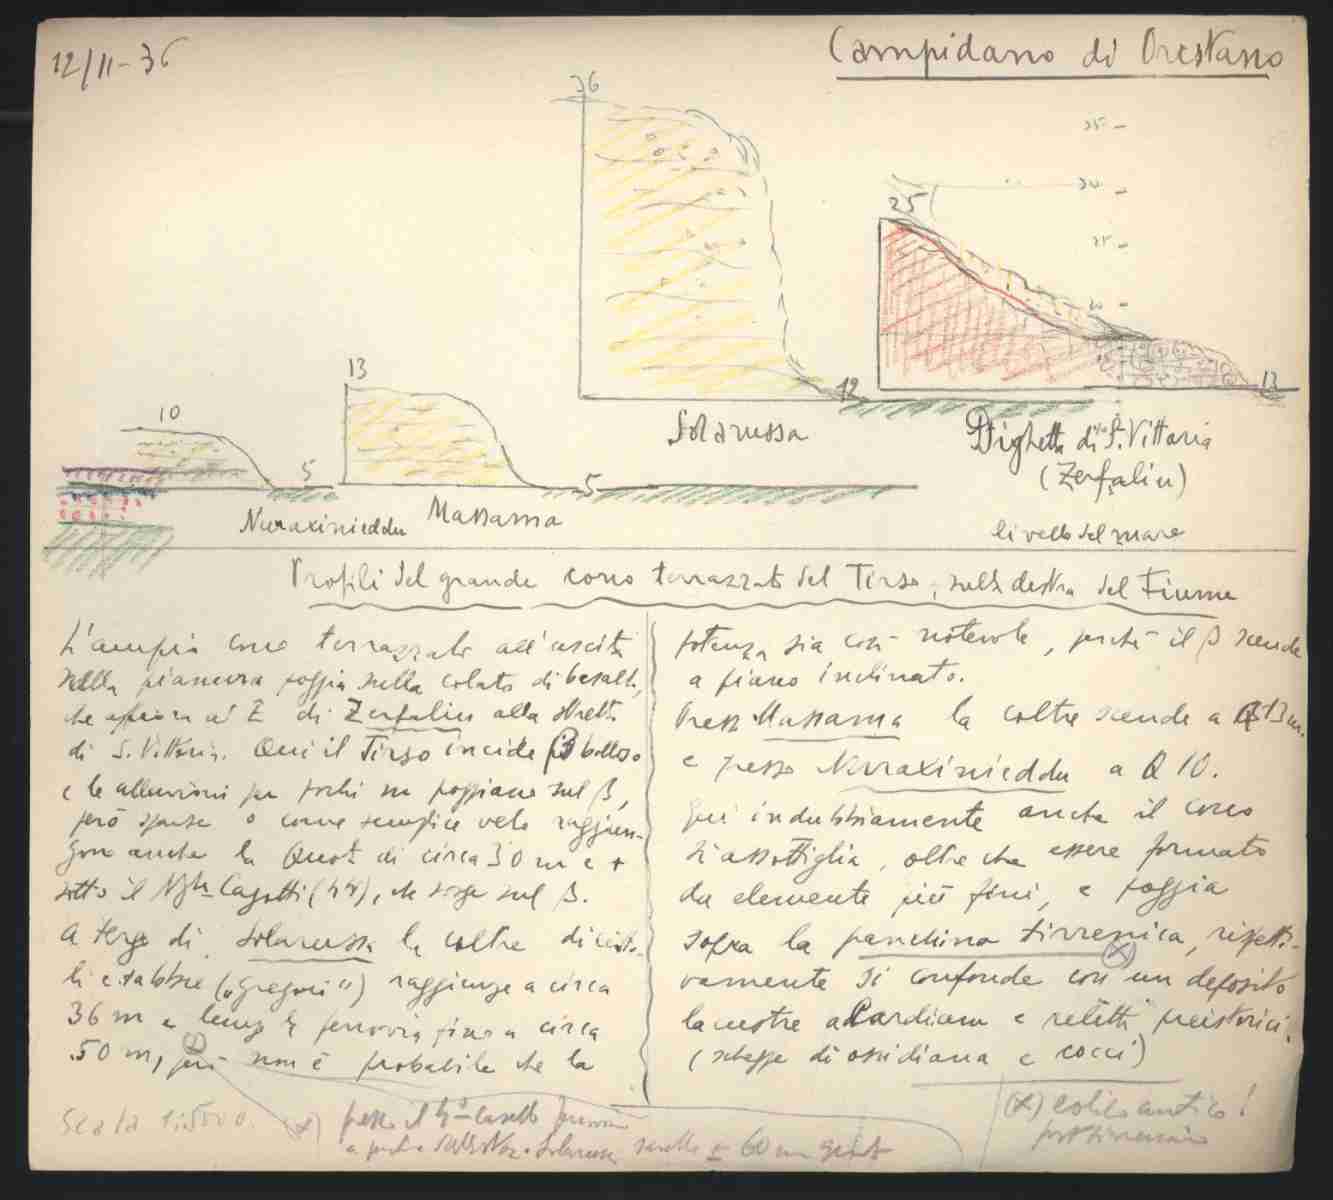 12/11-36
Campidano di Oristano
36
35
30
25
25
20
13
10
5
5
12
13
Nuraxinieddu
Massama
Solarussa
Dighetta di S. Vittoria
(Zerfaliu)
livello del mare
Profili del grande cono terrazzato del Tirso, sulla destra del Fiume
L'ampio cono terrazzato all'uscita
nella pianura poggia sulla colata di basalti,
che affiora ad E di Zerfaliu alla stretta
di S. Vittoria. Qui il Tirso incide il β bolloso
e le alluvioni per pochi m poggiano sul β,
però sparse o come semplice velo raggiun-
gono anche la Quota di circa 30 m e +
sotto il Ngh Cagotti (44), che sorge sul β.
A tergo di Solarussa la coltre di ciotto-
li e sabbie ("gregori") raggiunge a circa
36 m e lungo la ferrovia fino a circa
50 m, però non è probabile che la
potenza sia così notevole, perchè il β scende
a piano inclinato.
Presso Massama la coltre scende a Q 13 m.
e presso Nuraxinieddu a Q 10.
Qui indubbiamente anche il cono
si assottiglia, oltre che essere formato
da elemente più fini, e poggia
sopra la panchina tirrenica, rispetti-
vamente si confonde con un deposito
lacustre a Cardium e relitti preistorici.
(schegge di ossidiana e cocci)
Scala 1:5000.
(x) presso il 4° Casello ferrovia
a Solarussa ± 60 m
(x) eolico antico!
posttirreniano